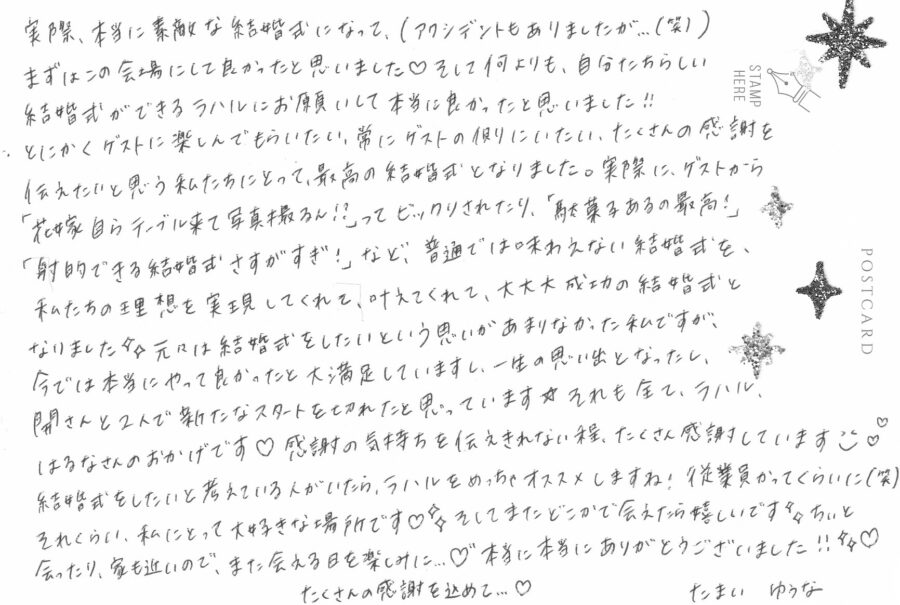 実際、本当に素敵な結婚式になって、(アクシデントもありましたが…(笑))
まずはこの会場にして良かったと思いました♡そして何よりも、自分たちらしい
結婚式ができるラハルにお願いして本当に良かったと思いました!!
とにかくゲストに楽しんでもらいたい、常にゲストの側にいたい、たくさんの感謝を
伝えたいと思う私たちにとって、最高の結婚式となりました。実際に、ゲストから
「花嫁自らテーブル来て写真撮るん!?」ってビックリされたり、「駄菓子あるの最高!」
「射的できる結婚式さすがすぎ!」など、普通では味わえない結婚式を、
私たちの理想を実現してくれて、叶えてくれて、大大大成功の結婚式と
なりました✨元々は結婚式をしたいという思いがあまりなかった私ですが、
今では本当にやって良かったと大満足していますし、一生の思い出となったし、
開さんと2人で新たなスタートを切れたと思っています☆それも全て、ラハル、
はるなさんのおかげです♡感謝の気持ちを伝えきれない程、たくさん感謝しています
結婚式をしたいと考えている人がいたら、ラハルをめっちゃオススメしますね!従業員かってくらいに(笑)
それくらい、私にとって大好きな場所です♡✨そしてまたどこかで会えたら嬉しいです✨ちぃと
会ったり、家も近いので、また会える日を楽しみに…♡本当に本当にありがとうございました!!✨♡
たくさんの感謝を込めて…♡
たまい ゆうな
STAMP
HERE
POSTCARD